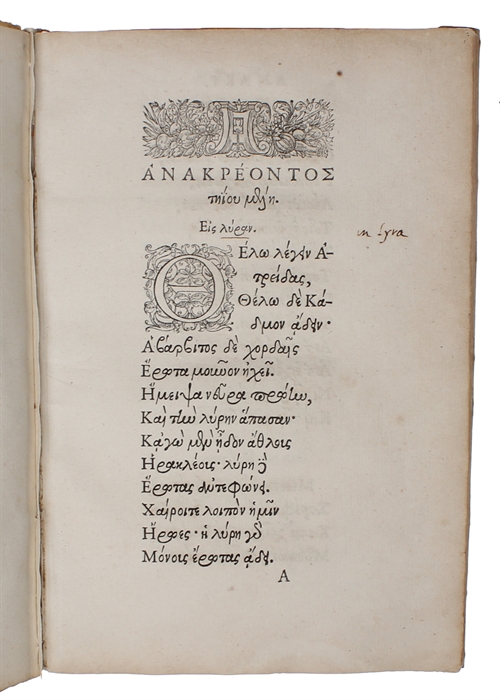 ΑΝΑΚΡΕΟΝΤΟΣ
τηΐου μέλη.
Εἰς λύραν.
in Lyra
Θέλω λέγειν Ἀ-
τρείδας,
Θέλω δὲ Κά-
δμον ᾄδειν·
Ἁ βάρβιτος δὲ χορδαῖς
Ἔρωτα μοῦνον ἠχεῖ.
Ἤμειψα νεῦρα πρώην,
Καὶ τὴν λύρην ἅπασαν·
Κἀγὼ μὲν ᾖδον ἄθλους
Ἡρακλέους· λύρη δὲ
Ἔρωτας ἀντεφώνει.
Χαίροιτε λοιπὸν ἡμῖν
Ἥρωες· ἡ λύρη γὰρ
Μόνους ἔρωτας ᾄδει.
A